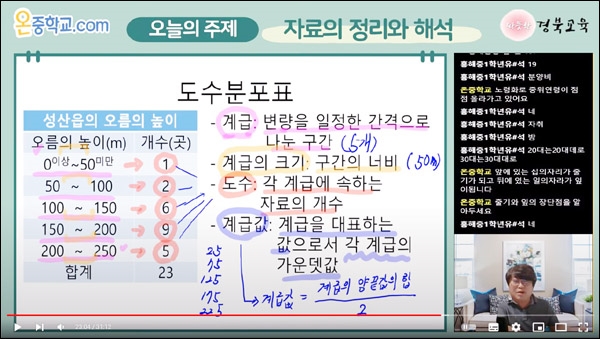 온중학교.com
오늘의 주제
자료의 정리와 해석
경북교육
도수분포표
성산읍의 오름의 높이
오름의 높이(m) 개수(곳)
0이상~50미만 1
50 ~ 100 2
100 ~ 150 6
150 ~ 200 9
200 ~ 250 5
합계 23
- 계급: 변량을 일정한 간격으로
나눈 구간 (5개)
- 계급의 크기: 구간의 너비 (50m)
- 도수: 각 계급에 속하는
자료의 개수
- 계급값: 계급을 대표하는
값으로서 각 계급의
가운뎃값
25
75
125
175
225
계급값 = 계급의 양끝값의 합
2
흥해중1학년유#석 19
흥해중1학년유#석 분양비
온중학교 노령화로 중위연령이 점
점 올라가고 있어요
흥해중1학년유#석 네
흥해중1학년유#석 자취
흥해중1학년유#석 밤
흥해중1학년유#석 20대는20대대로
30대는30대대로
온중학교 앞에 있는 십의자리가 줄
기가 되고 뒤에 있는 일의자리가 잎
이됩니다
온중학교 줄기와 잎의 장단점을 알
아두세요
흥해중1학년유#석 네